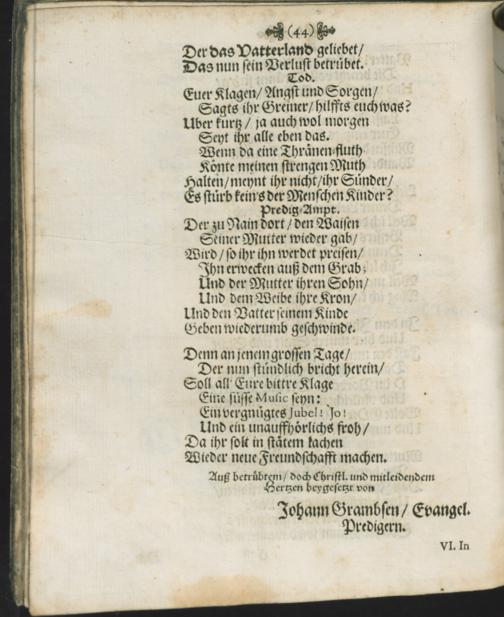 (44)
Der das Vatterland geliebet/
Das nun sein Verlust betrübet.
Tod.
Euer Klagen/ Angst und Sorgen/
Sagts ihr Greiner/ hilffts euch was?
Uber kurtz/ ja auch wol morgen
Seyt ihr alle eben das.
Wenn da eine Thränen-fluth
Könte meinen strengen Muth
Halten/ meynt ihr nicht/ ihr Sünder/
Es stürb keins der Menschen Kinder?
Predig-Ampt.
Der zu Nain dort/ den Waisen
Seiner Mutter wieder gab/
Wird/ so ihr ihn werdet preisen/
Ihn erwecken auß dem Grab:
Und der Mutter ihren Sohn/
Und dem Weibe ihre Kron/
Und den Vatter seinem Kinde
Geben wiederumb geschwinde.
Denn an jenem grossen Tage/
Der nun stündlich bricht herein/
Soll all' Eure bittre Klage
Eine süsse Music seyn:
Ein vergnügtes Jubel! Jo!
Und ein unauffhörlichs froh/
Da ihr solt in stätem lachen
Wieder neue Freundschafft machen.
Auß betrübtem/ doch Christl. und mitleidendem
Hertzen beygesetzt von
Johann Grambsen/ Evangel.
Predigern.
VI. In